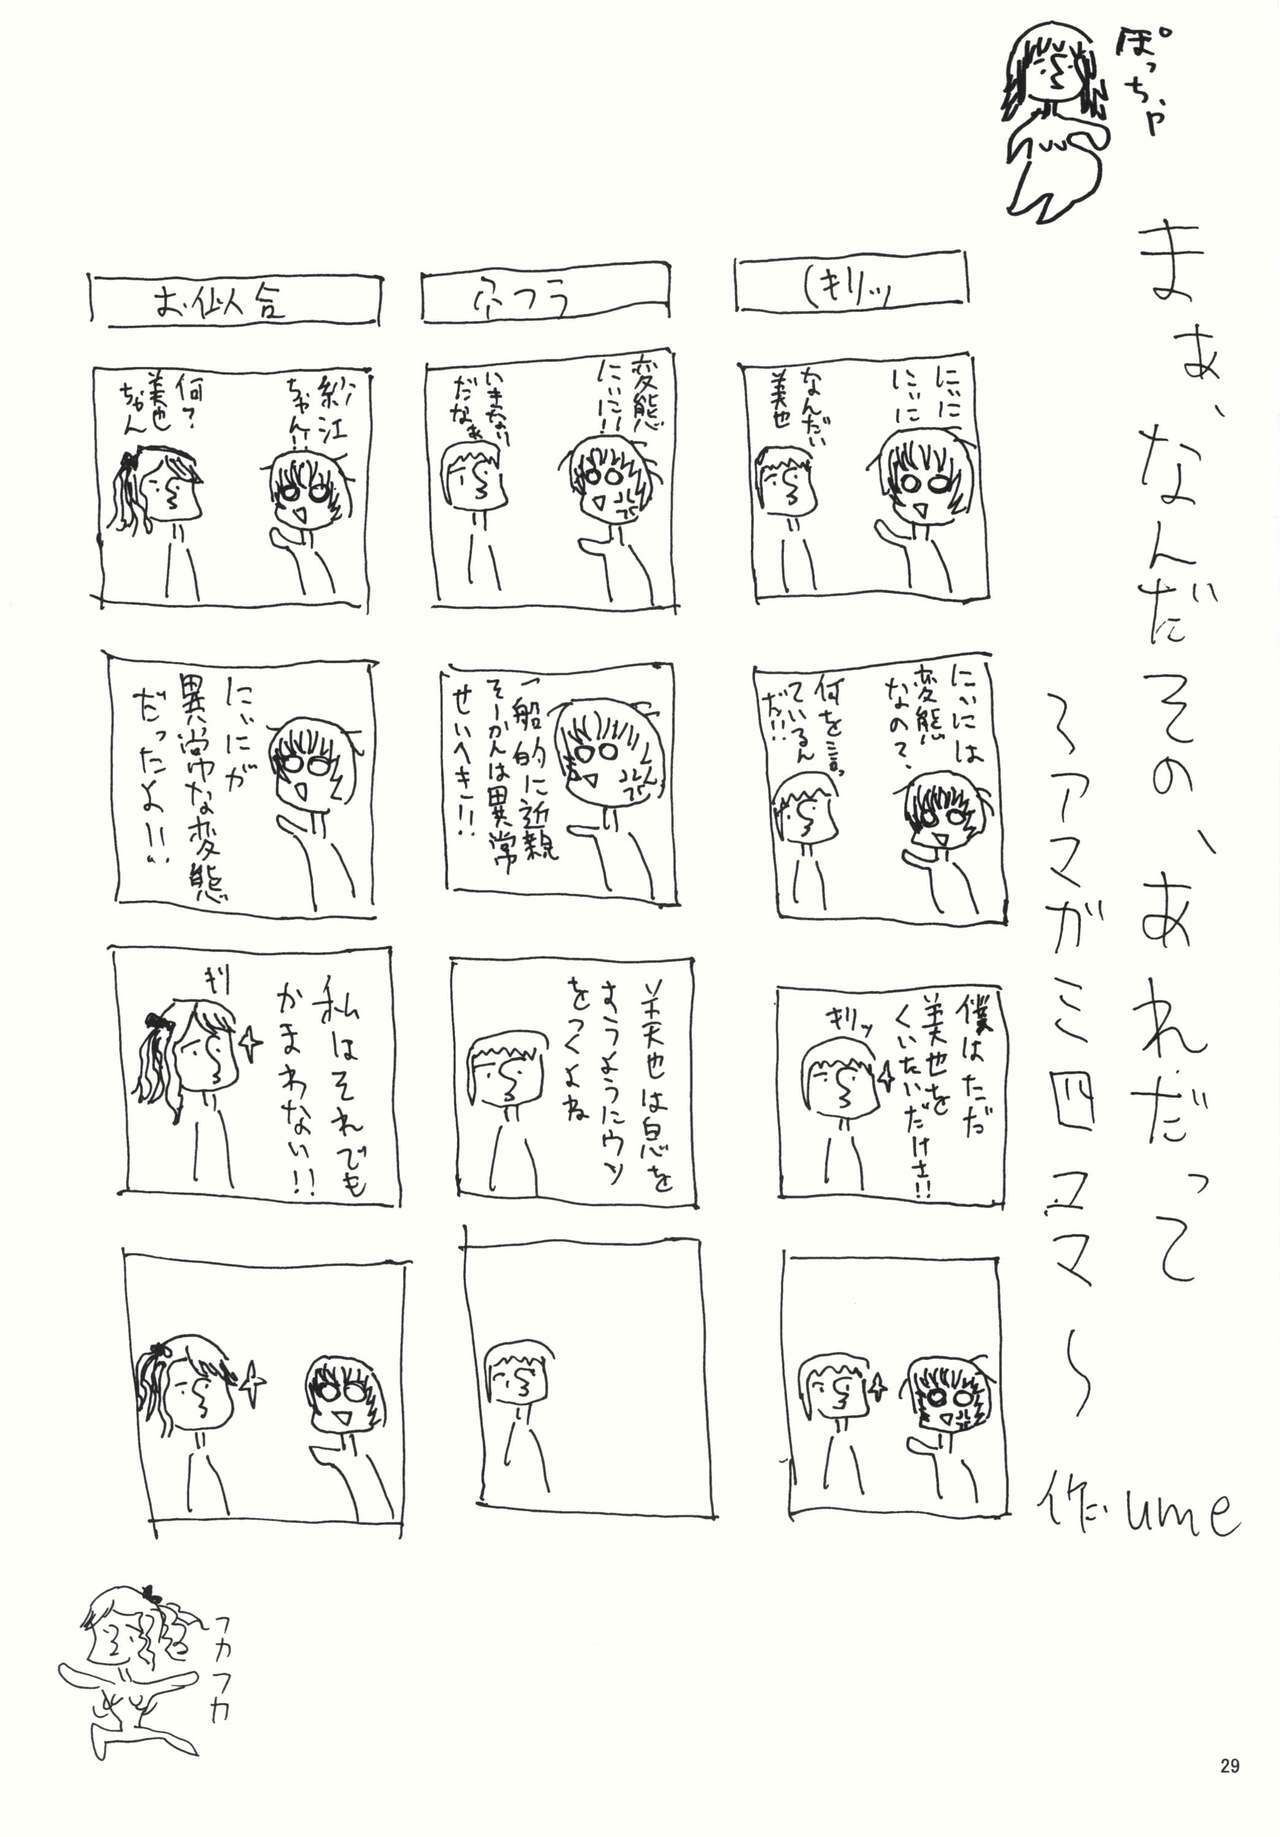 ぽっちゃ
まぁ、なんだその、あれだって
〜アマガミ四コマ〜
作だume
(キリッ
にぃに
にぃに
なんだい
美也
にぃには
変態
なの?
何を言っ
ているん
だ!!
僕はただ
美也を
くいたいだけさ!!
キリッ
ふつう
変態
にぃに!!
いきなり
だなぁ
一般的に近親
そーかんは異常
せいへき!!
美也は息を
すうようにウソ
をつくよね
お似合
紗江
ちゃん!!
何?
美也
ちゃん
にぃにが
異常な変態
だったよ!!
私はそれでも
かまわない!!
キリ
フカフカ
29